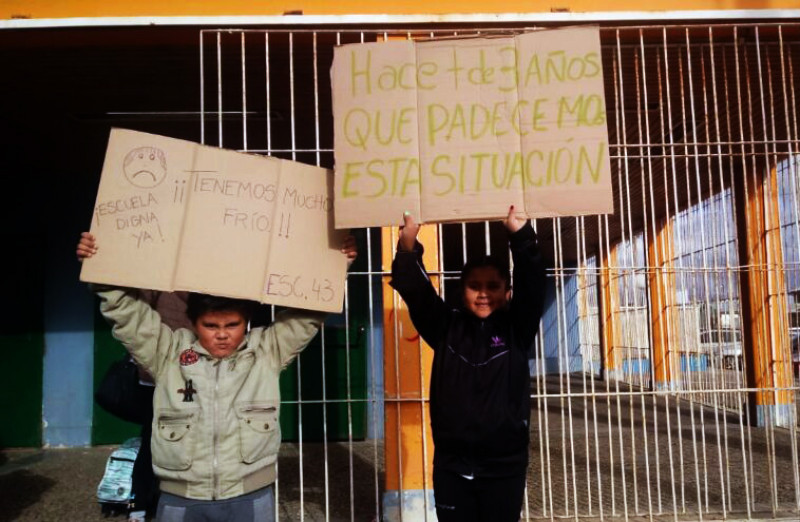 ¡ESCUELA
DIGNA
YA!
¡¡TENEMOS MUCHO
FRIO!!
ESC. 43
Hace + de 3 AÑOS
QUE PADECEMOS
ESTA SITUACIÓN